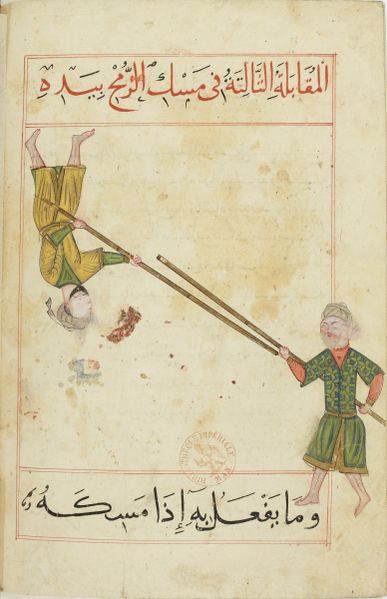 المقَابلَةِ الثَّالِثَةُ فى مَسْك الرُّمْحِ بِيَدِهِ
وَمَا يَفْعَلُ بِهِ إِذَا مَسَكَهُ
BIBLIOTHEQUE IMPERIALE